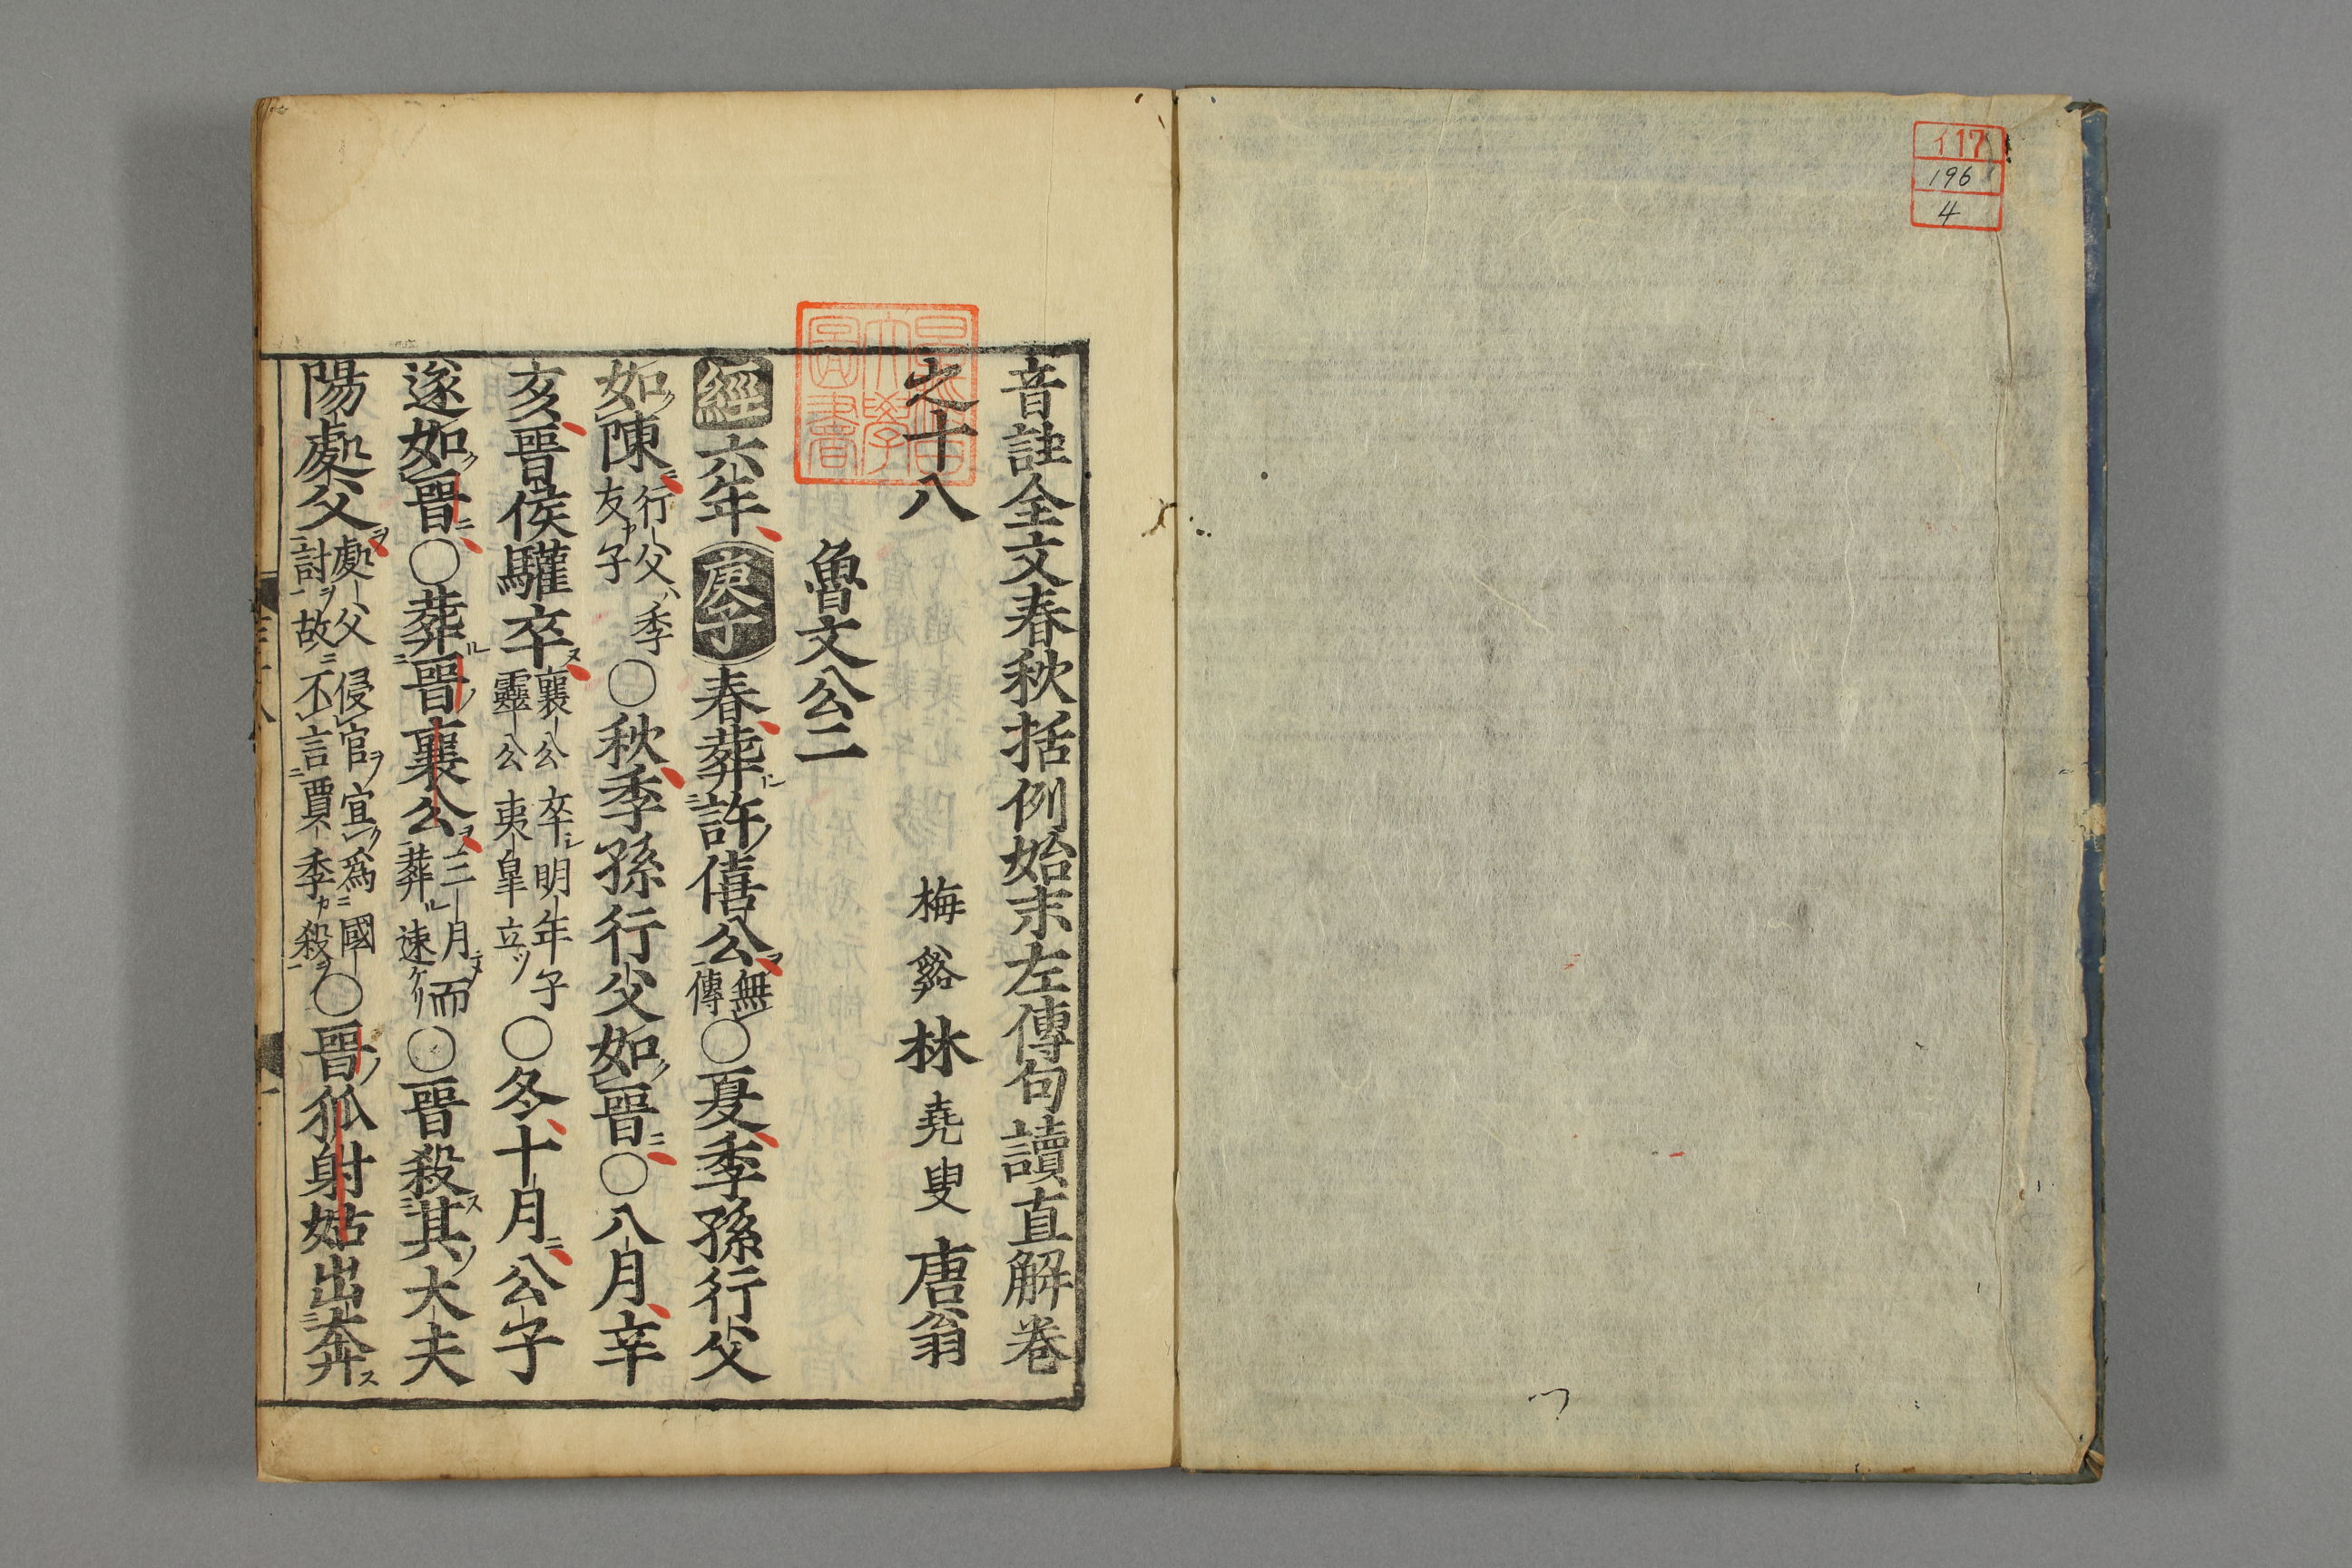 イ17
196
4
音註全文春秋括例始末左傳句讀直解卷
之十八
梅谿林堯叟唐翁
早稲田大學圖書
魯文公二
經六年庚子春葬許僖公無傳〇夏季孫行父
如陳行父季友子〇秋季孫行父如晉〇八月辛
亥晉侯驩卒襄公卒明年子靈公夷皐立〇冬十月公子
遂如晉〇葬晉襄公三月而葬速〇晉殺其大夫
陽處父處父侵官宜爲國討故不言賈季殺〇晉狐射姑出奔